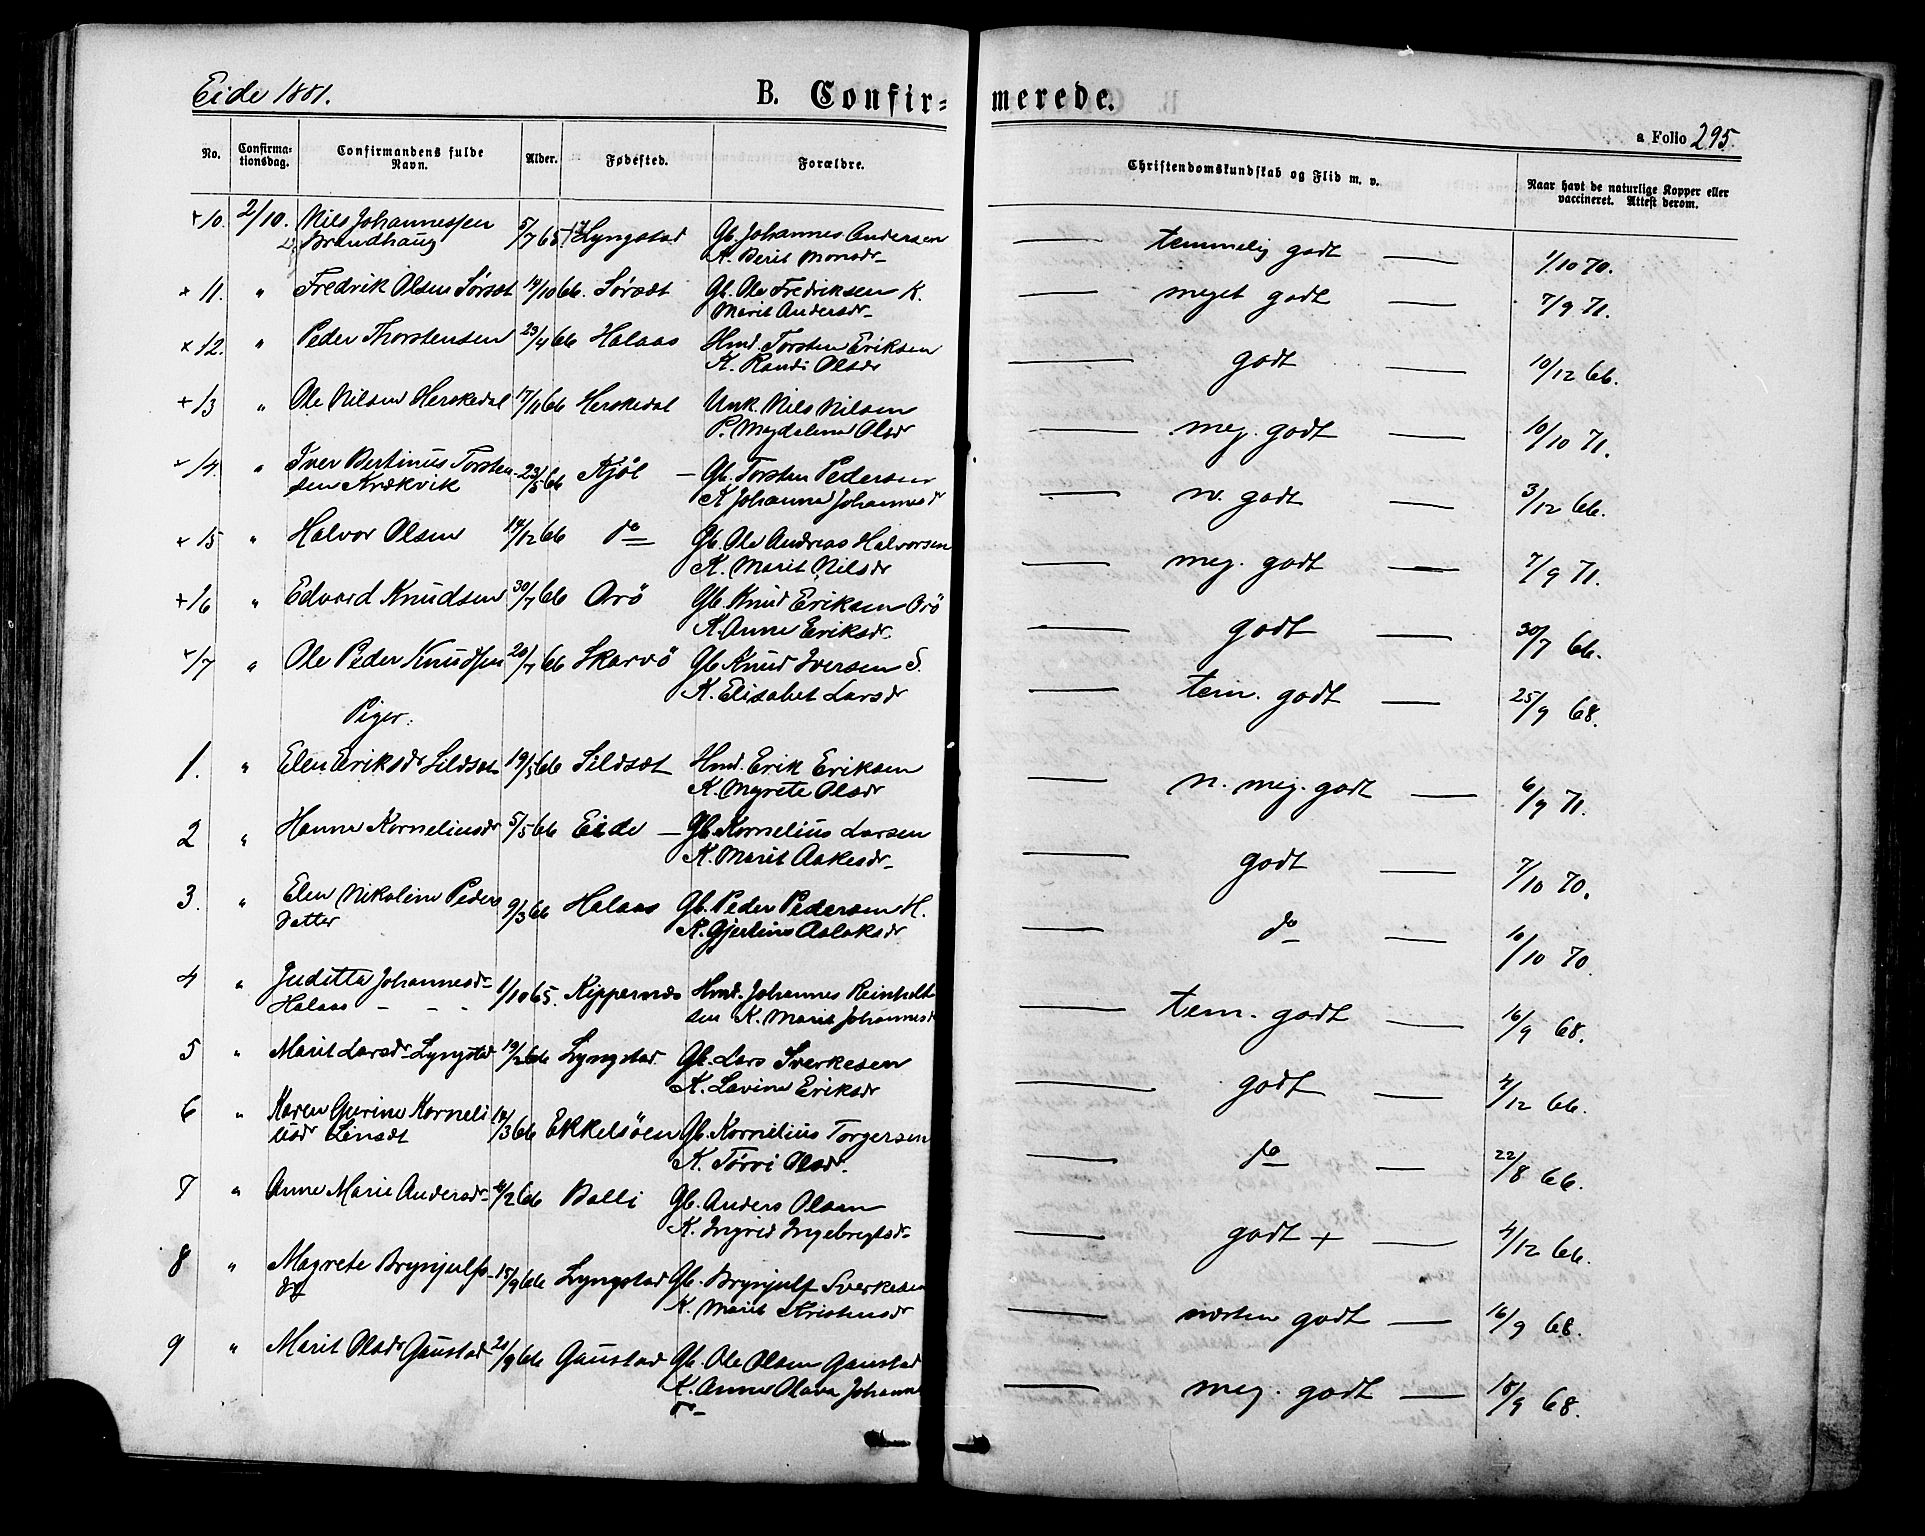 Eide 1881.
B. Confir= merede.
a Folio 295.
No.
Confirma-
tionsdag.
Confirmandens fulde
Navn.
Alder.
Fødested.
Forældre.
Christendomskundskab og Flid m. v.
Naar havt de naturlige Kopper eller
vaccineret. Attest derom.
+ 10. 2/10. Nils Johannessen 5/7 65 Lyngstad Gb. Johannes Andersen — temmelig godt — 1/10 70.
Brandhaug K. Berit Monsdr
+ 11. " Fredrik Olsen Sørsæt 14/10 66. Sørsæt Gb. Ole Fredriksen K. — meget godt — 7/9 71.
Marit Andersdr
+ 12. " Peder Thorstensen 23/4 66 Halaas Hmd. Torsten Eriksen — godt — 10/12 66.
K. Randi Olsdr
+ 13 " Ole Nilsen Herskedal 17/11 66 Herskedal Unk. Nils Nilsen — meg. godt — 10/10 71.
P. Magdalena Olsdr
+ 14. " Iver Bertinus Torsten- 23/5 66 Kjøl — Gb. Torsten Pedersen — n. godt — 3/12 66.
sen Krækvik K Johanna Johannesdr
+ 15 " Halvor Olsen 14/12 66 do Gb. Ole Andreas Halvorsen — meg. godt — 7/9 71.
K. Marit Nilsdr
+ 16 " Edvard Knudsen 30/7 66 Orö Gb. Knud Eriksen Orö — godt — 30/7 66.
K. Anne Eriksdr.
+ 17 " Ole Peder Knudsen 20/7 66 Skarvö Gb Knud Iversen S. — tem. godt — 25/9 68.
K. Elisabet Larsdr
Piger.
1. " Elen Eriksdr Sildsæt 19/5 66 Sildsæt Hmd. Erik Eriksen — n. meg. godt — 6/9 71.
K. Magrete Olsdr
2 " Hanna Korneliusdr 5/5 66 Eide — Gb. Kornelius Larsen — godt — 7/10 70.
K. Marit Aakesdr
3. " Elen Nikoline Peders 9/3 66 Halaas Gb. Peder Pedersen H. — do — 10/10 70
datter K. Gjertine Aslaksdr
4 " Juditta Johannesdr 1/10 65. Kippernæs Hmd. Johannes Reinholt — tem. godt — 16/9 68.
Halaas - - - sen K. Marit Johannesdr
5 " Marit Larsdr Lyngstad 19/2 66 Lyngstad. Gb. Lars Sverkesen — godt — 4/12 66.
K. Lavine Eriksdr
6 " Karen Gurine Korneli 14/3 66 Ekkelsöen Gb. Kornelius Torgersen — do — 22/8 66.
usdr Linsæt K. Törri Olsdr.
7 " Anne Marie Andersdr 4/2 66 Bolli Gb. Anders Olsen — godt + — 4/12 66.
K. Ingrid Ingebrigtsdr
8 " Magrete Brynjulfs- 15/9 66 Lyngstad Gb. Brynjulf Sverkesen — næsten godt — 16/9 68.
dr K. Marit Kristensdr
9 " Marit Olsdr Gaustad 20/9 66 Gaustad Gb. Ole Olsen Gaustad — meg. godt — 18/9 68.
K. Anne Olava Johannes
dr